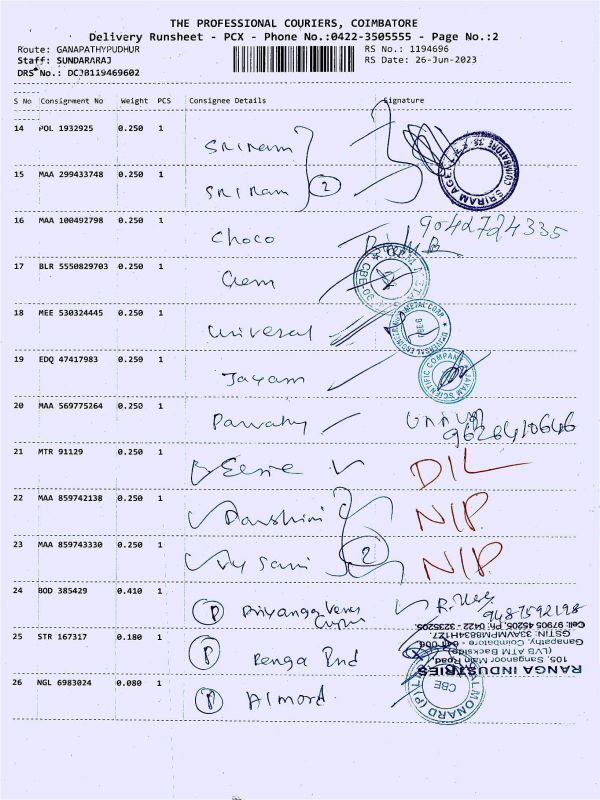 THE PROFESSIONAL COURIERS, COIMBATORE
Delivery Runsheet - PCX - Phone No.:0422-3505555 - Page No.:2
Route: GANAPATHYPUDHUR
RS No.: 1194696
Staff: SUNDARARAJ
RS Date: 26-Jun-2023
DRS No.: DCJB119469602
S No Consignment No Weight PCS Consignee Details Signature
14 POL 1932925 0.250 1 SRIRAM
SRIRAM AGE COIMBATORE
15 MAA 299433748 0.250 1 SRIRAM 2
16 MAA 100492798 0.250 1 Choco 9042724335
17 BLR 5550829703 0.250 1 Gem
18 MEE 530324445 0.250 1 Universal
UNIVERSAL ENGINEERING METAL CORP CBE-6
19 EDQ 47417983 0.250 1 Jayam
JAYAM SCIENTIFIC COMPANY
20 MAA 569775264 0.250 1 Parvathy
9626410646
21 MTR 91129 0.250 1 DIL
22 MAA 859742138 0.250 1 Darshini NIP
23 MAA 859743330 0.250 1 2 NIP
24 BOD 385429 0.410 1 P Priyanga
9487592198
25 STR 167317 0.180 1 P Renga Ind
Cell: 97905 45205, Ph: 0422 - 3235205
GSTIN: 33AVMPM8834H1Z7
Ganapathy, Coimbatore - 641 006
(LVB ATM Backside)
105, Sanganoor Main Road
RANGA INDUSTRIES
26 NGL 6983024 0.080 1 P Almond
CBE